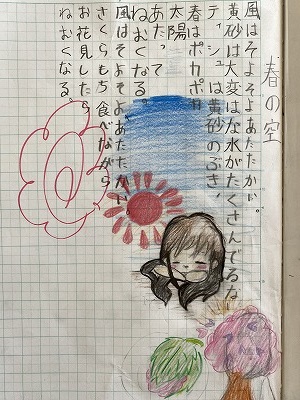 春の空
風はそよそよあたたかい。
黄砂は大変はな水がたくさんでるな
ティシュは黄砂のぶき、
春はポカポカ
太陽
あたって
ねむくなる。
風はそよそよあたたかい、
さくらもち食べながら
お花見したら
ねむくなる。